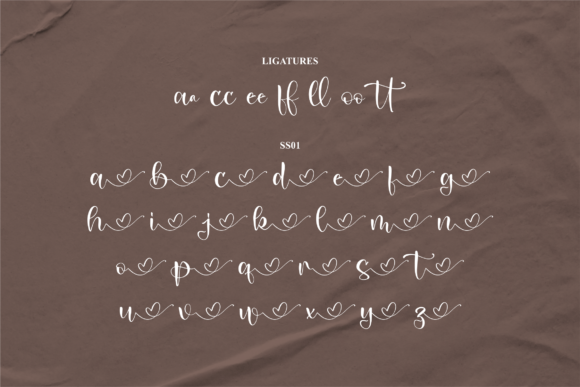 LIGATURES
aa cc ee ff ll oo tt
SS01
a b c d e f g
h i j k l m n
o p q r s t
u v w x y z